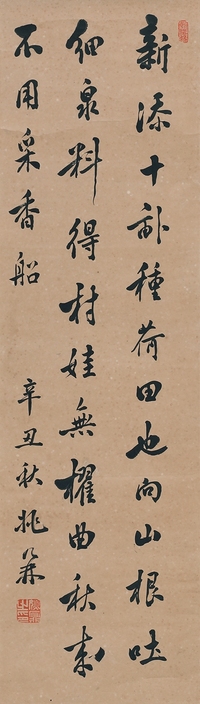 新添十畝種荷田也向山根吐
細泉料得村娃無櫂曲秋來
不用采香船
辛丑秋姚鼐